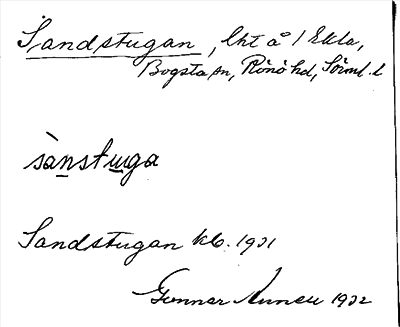 Sandstugan, lht å 1 Ekla,
Bogsta sn, Rönö hd, Sörml. l
sànstuga
Sandstugan kb. 1931
Gunnar 1932